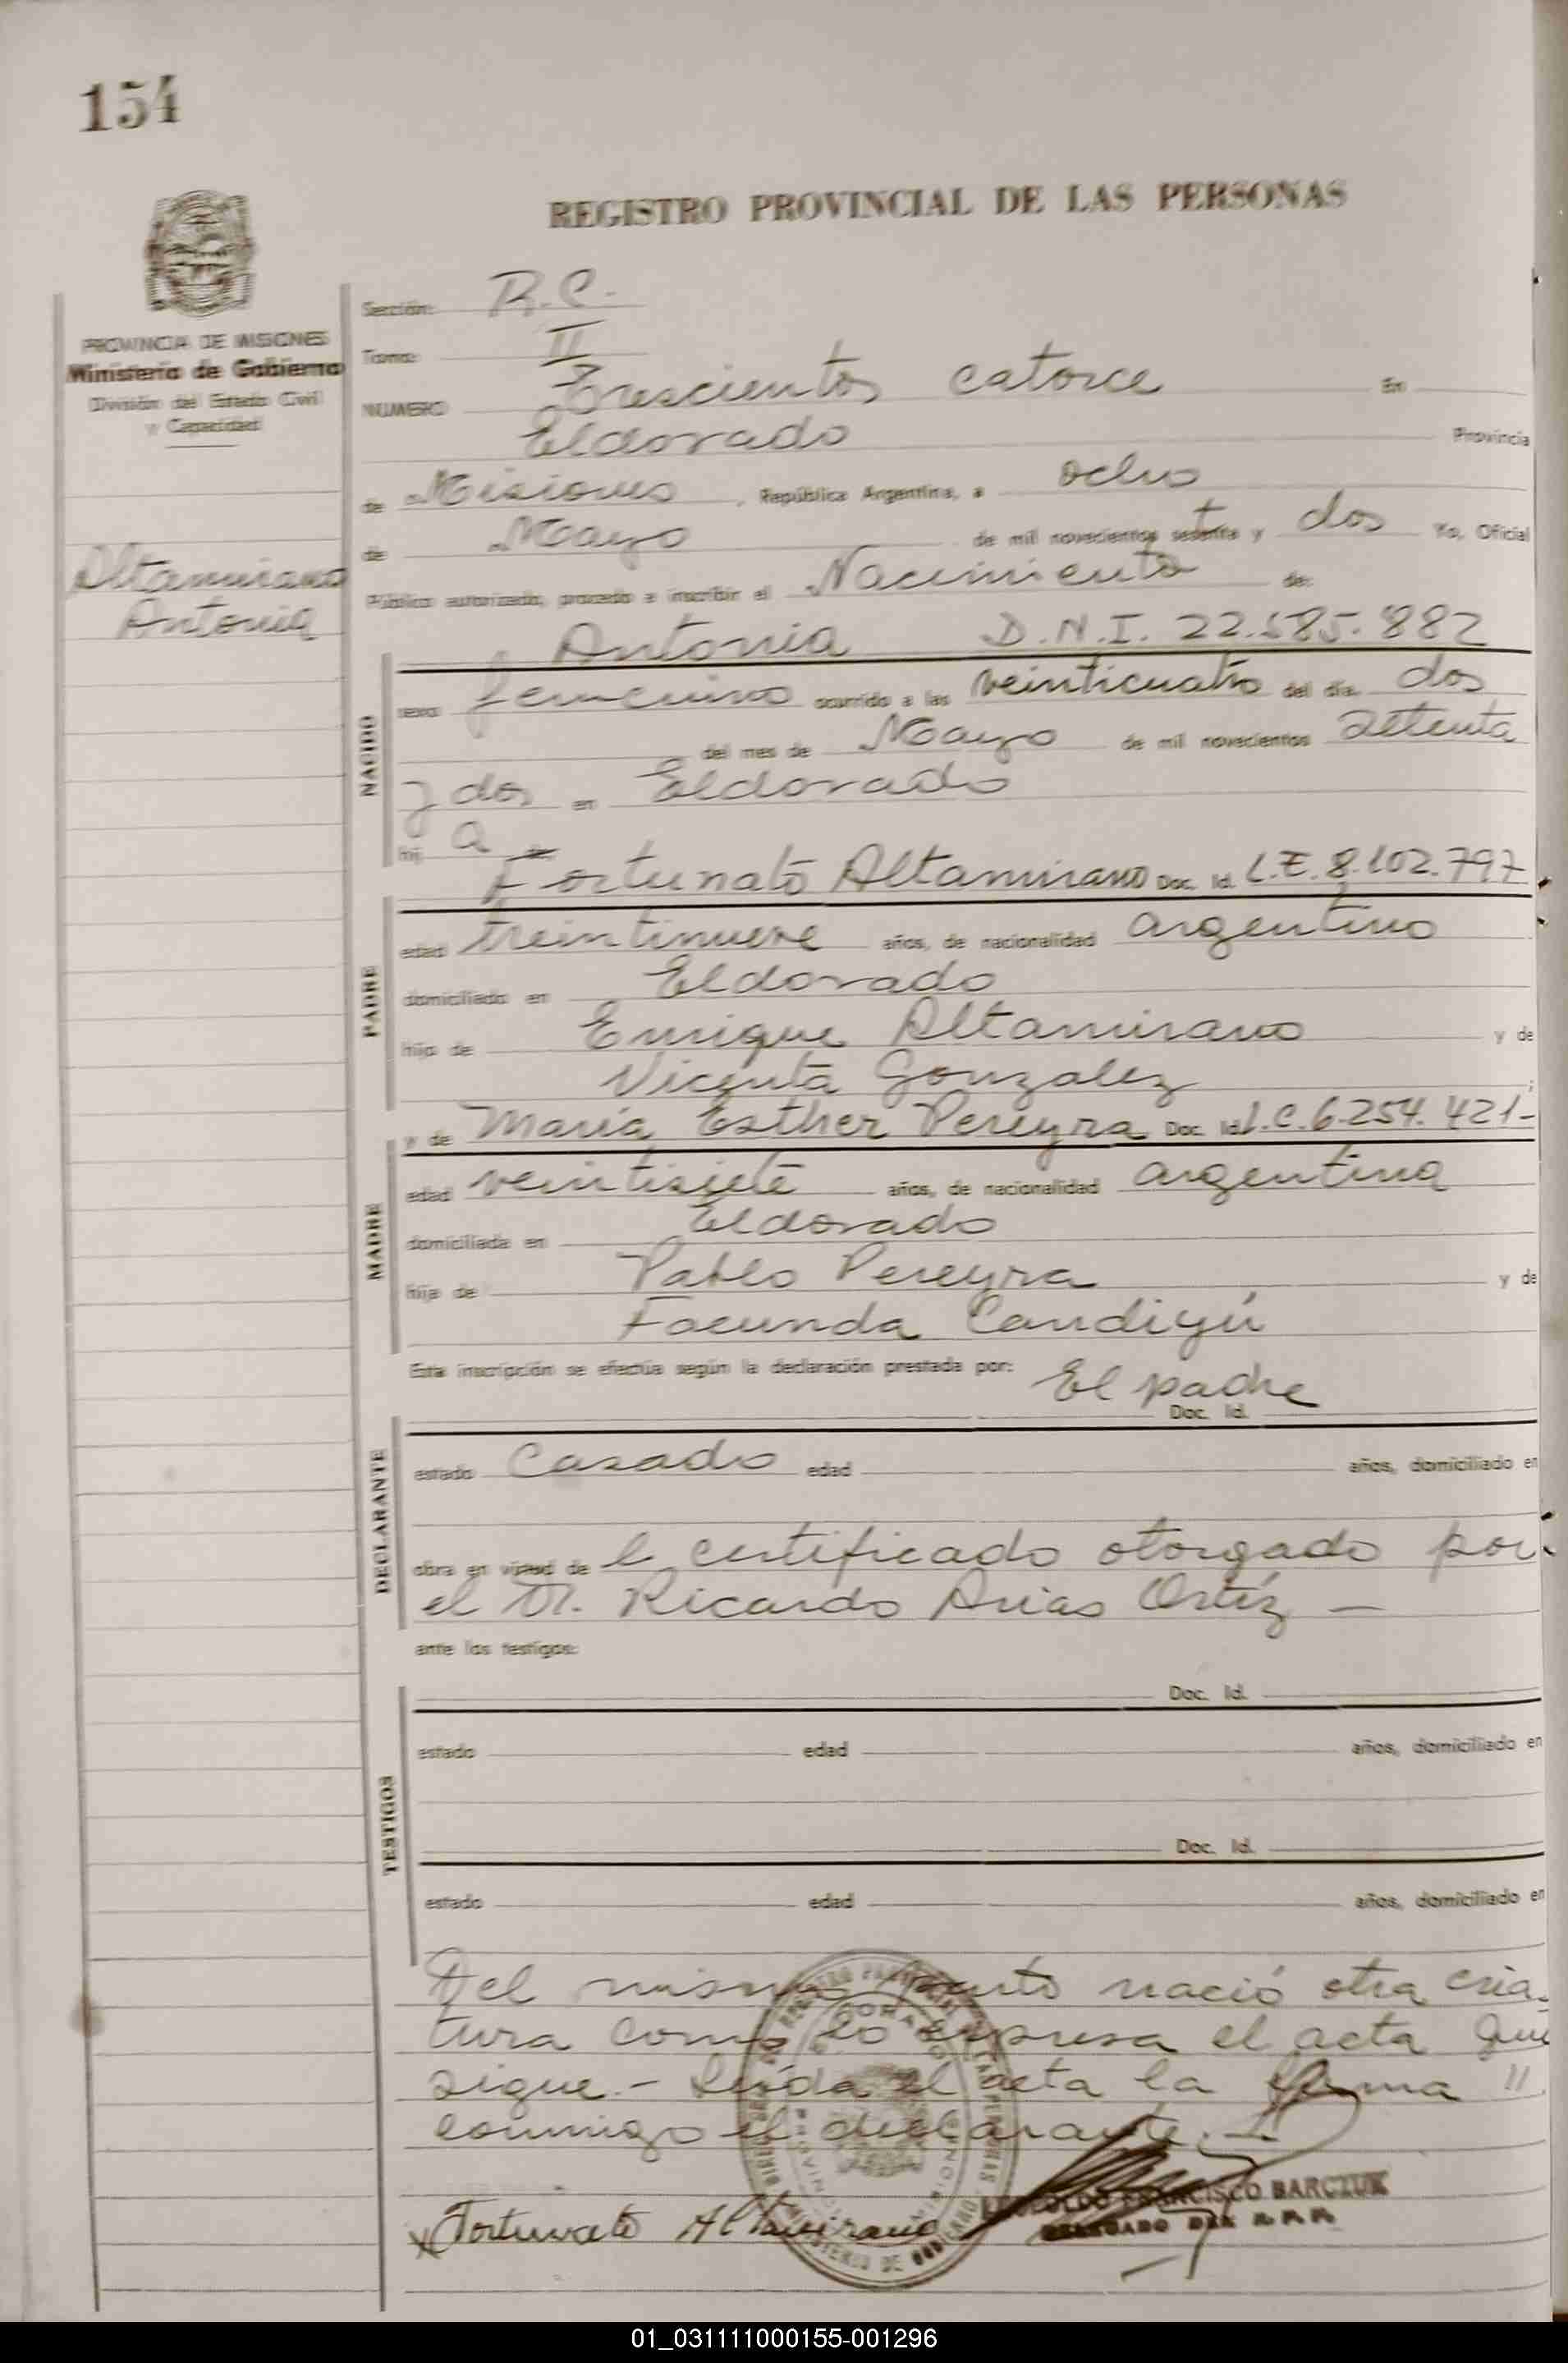 154
REGISTRO PROVINCIAL DE LAS PERSONAS
PROVINCIA DE MISIONES
Ministerio de Gobierno
División del Estado Civil
y Capacidad
Altamirano
Antonia
Sección: R.C.
Tomo: II
NUMERO Trescientos catorce En
Eldorado Provincia
de Misiones, República Argentina, a ocho
de Mayo de mil novecientos setenta y dos Yo, Oficial
Público autorizado, procedo a inscribir el Nacimiento de:
Antonia D.N.I. 22.585.882
NACIDO
sexo femenino ocurrido a las veinticuatro del día dos
del mes de Mayo de mil novecientos setenta
y dos en Eldorado
hij a de
Fortunato Altamirano Doc. Id. L.E. 8.102.797
PADRE
edad treintinueve años, de nacionalidad argentino
domiciliado en Eldorado
hijo de Enrique Altamirano y de
Vicenta Gonzalez ;
y de Maria Esther Pereyra Doc. Id. L.C. 6.254.421-
MADRE
edad veintisiete años, de nacionalidad argentina
domiciliada en Eldorado
hija de Pablo Pereyra y de
Facunda Candiyú
Esta inscripción se efectúa según la declaración prestada por: El padre
Doc. Id.
DECLARANTE
estado Casado edad años, domiciliado en
obra en virtud de l certificado otorgado por
el Dr. Ricardo Arias Ortíz —
ante los testigos:
Doc. Id.
TESTIGOS
estado edad años, domiciliado en
Doc. Id.
estado edad años, domiciliado en
Del mismo parto nació otra cria-
tura como lo expresa el acta que
sigue.- Leída el acta la firma "
conmigo el declarante.-
Fortunato Altamirano
FRANCISCO BARCZUK
DELEGADO DEL R.P.P.
MINISTERIO DE GOBIERNO
01_031111000155-001296